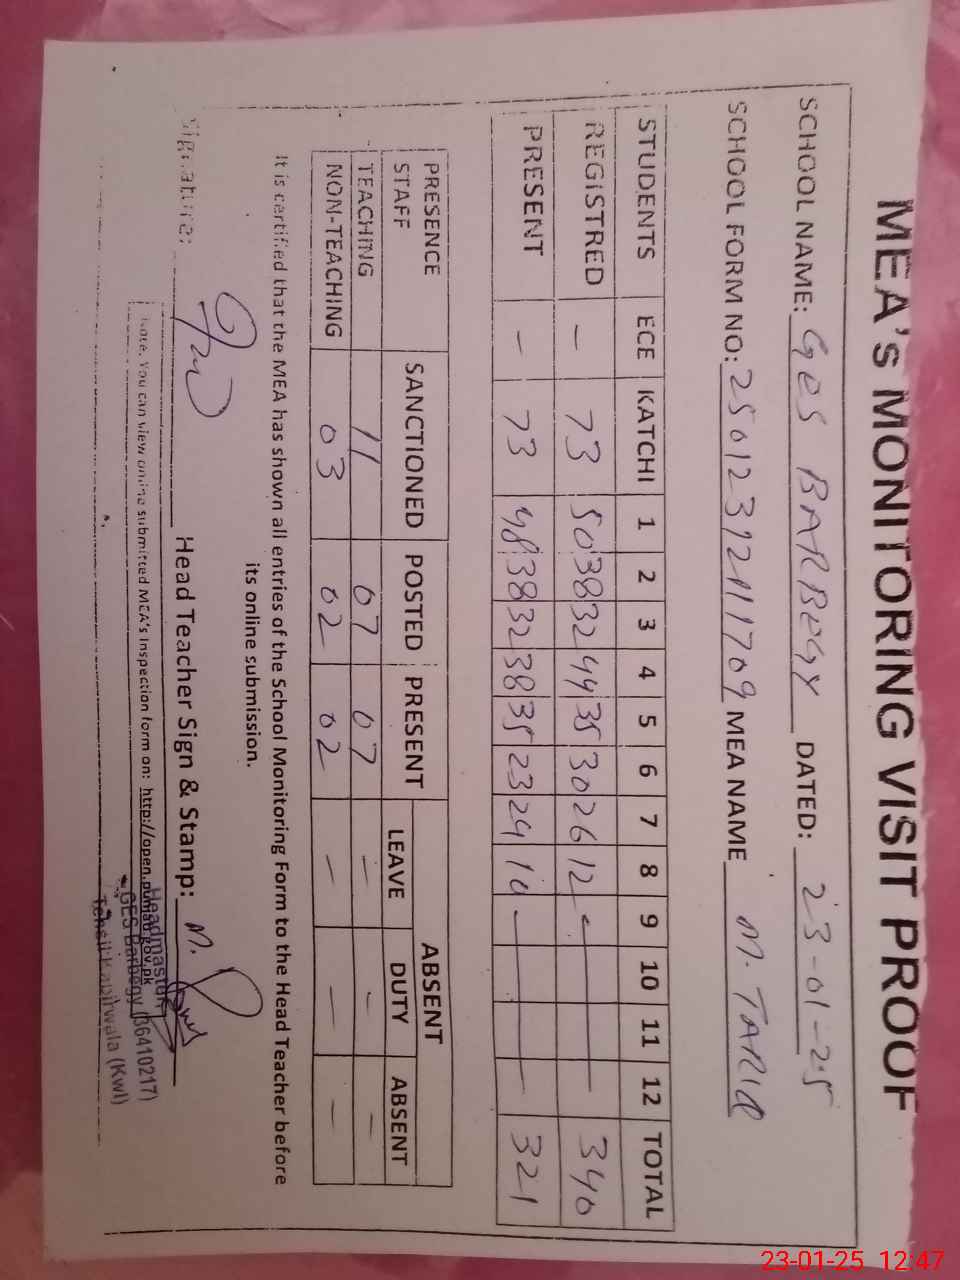 MEA's MONITORING VISIT PROOF
SCHOOL NAME: GES BARBEGY DATED: 23-01-25
SCHOOL FORM NO: MEA NAME M. TARIQ
STUDENTS ECE KATCHI 1 2 3 4 5 6 7 8 9 10 11 12 TOTAL
REGISTRED - 73 50 38 32 44 35 30 26 12 - 340
PRESENT - 73 48 38 32 38 35 23 24 10 - 321
PRESENCE STAFF SANCTIONED POSTED PRESENT ABSENT
LEAVE DUTY ABSENT
TEACHING 11 07 07 - - -
NON-TEACHING 03 02 02 - - -
It is certified that the MEA has shown all entries of the School Monitoring Form to the Head Teacher before
its online submission.
Signature: Head Teacher Sign & Stamp:
Note. You can view online submitted MEA's Inspection form on: http://open.punjab.gov.pk
Headmaster
GES Barbegy (36410217)
Tehsil: (Kwl)
23-01-25 12:47